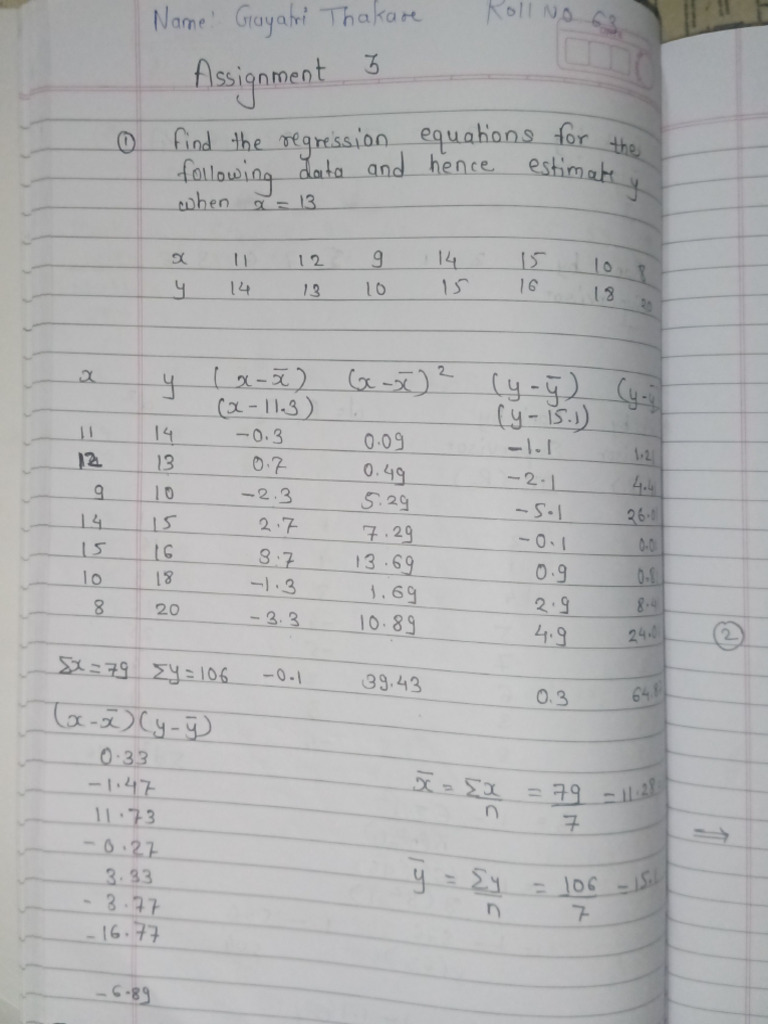 Name: Gayatri Thakare Roll No 63
Assignment 3
① find the regression equations for the
following data and hence estimate y
when x = 13
x 11 12 9 14 15 10 8
y 14 13 10 15 16 18 20
x y (x-x̄) (x-x̄)² (y-ȳ) (y-ȳ
(x-11.3) (y-15.1)
11 14 -0.3 0.09 -1.1 1.21
12 13 0.7 0.49 -2.1 4.4
9 10 -2.3 5.29 -5.1 26.0
14 15 2.7 7.29 -0.1 0.0
15 16 3.7 13.69 0.9 0.8
10 18 -1.3 1.69 2.9 8.4
8 20 -3.3 10.89 4.9 24.0
②
Σx=79 Σy=106 -0.1 39.43 0.3 64.8
(x-x̄)(y-ȳ)
0.33
-1.47
11.73
-0.27
3.33
-3.77
-16.77
-6.89
x̄ = Σx/n = 79/7 = 11.28
⇒
ȳ = Σy/n = 106/7 = 15.1